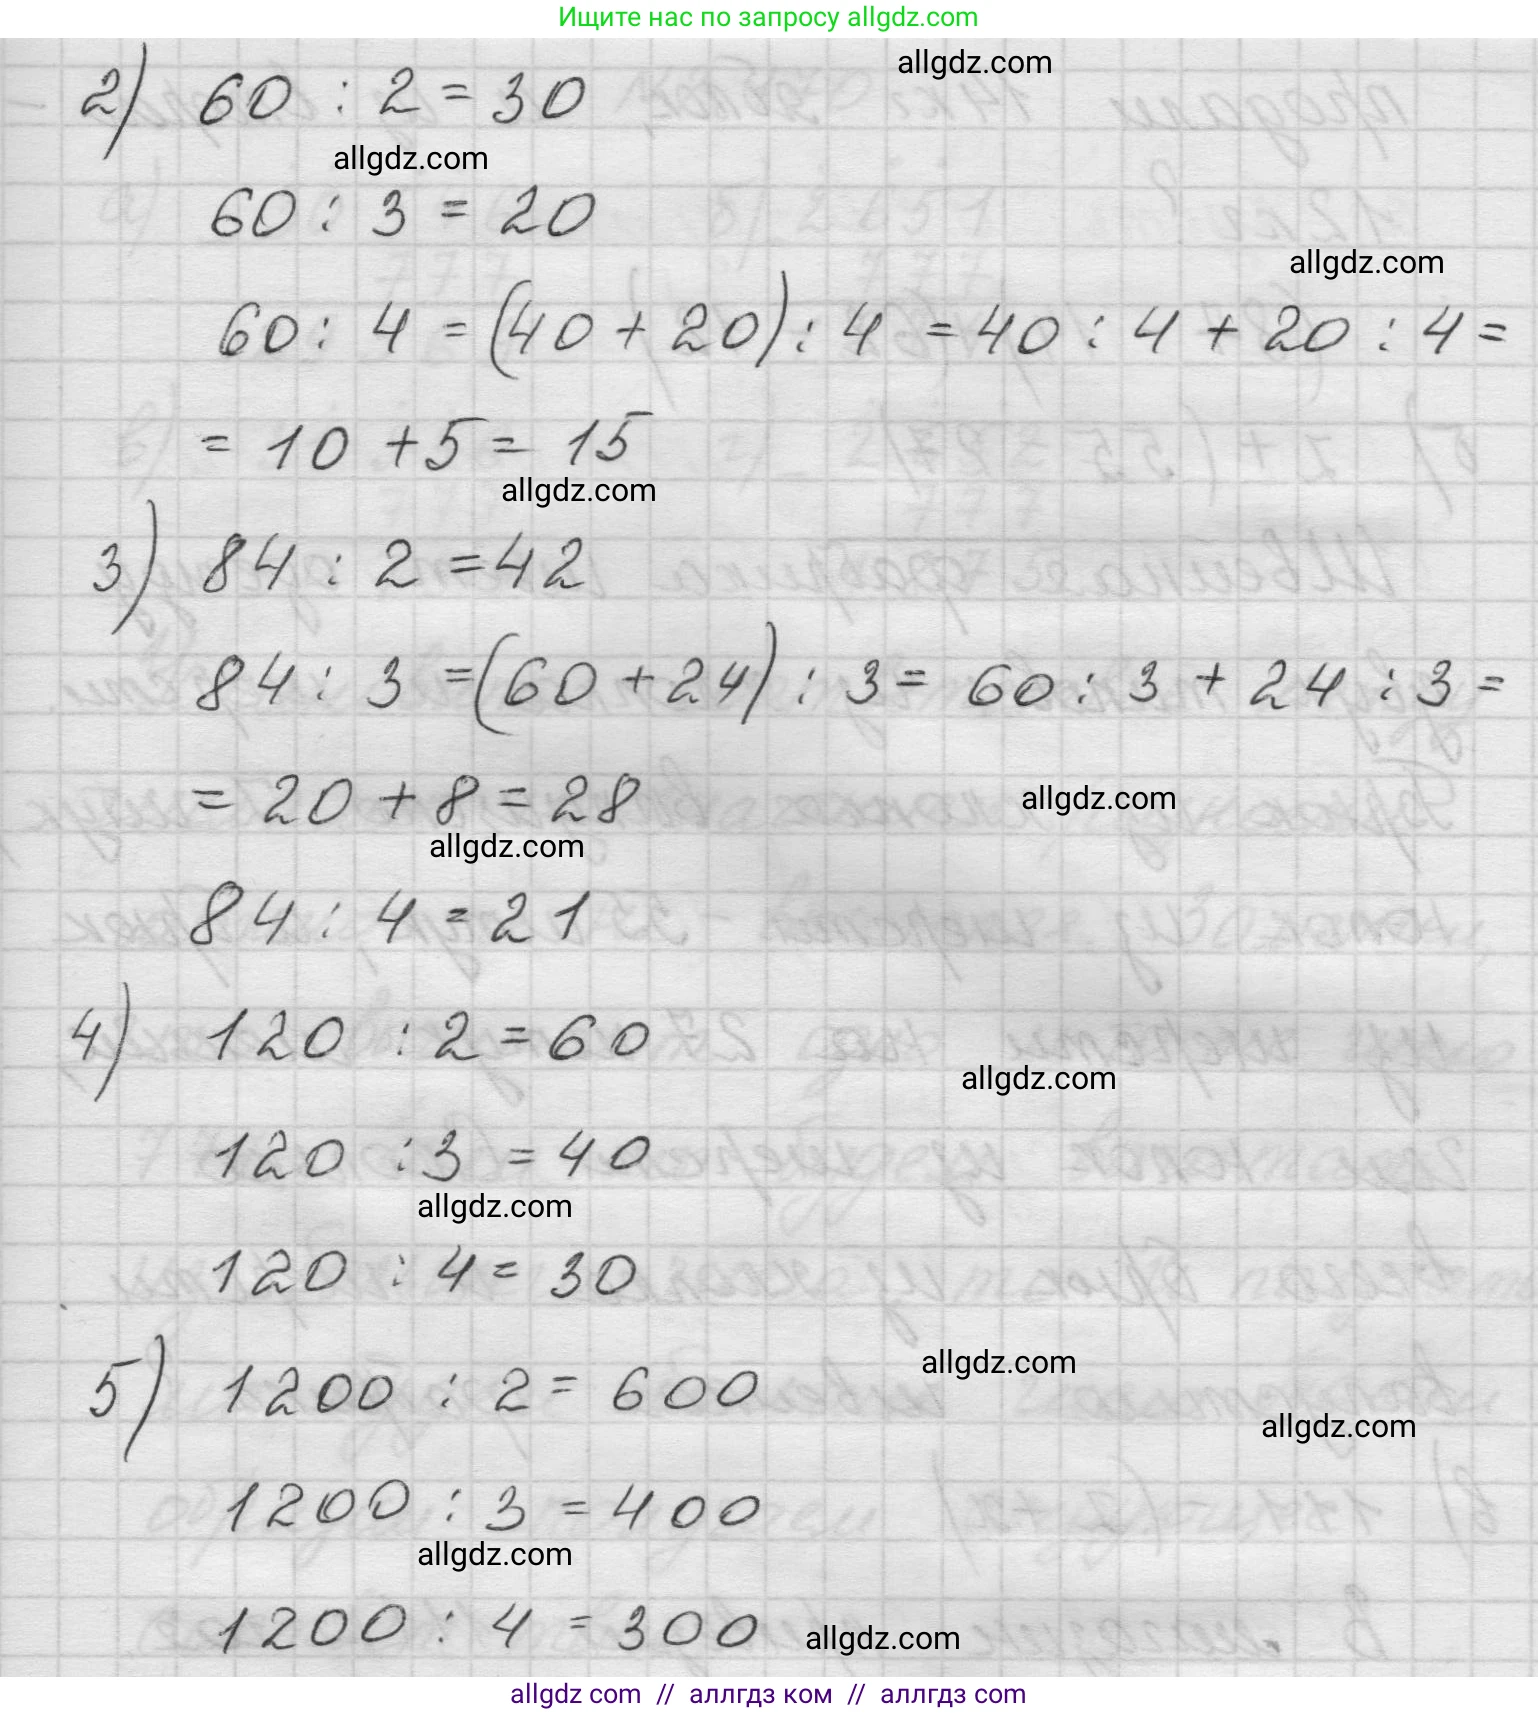 Ищите нас по запросу allgdz.com
allgdz.com
2) 60 : 2 = 30
allgdz.com
60 : 3 = 20
allgdz.com
60 : 4 = (40 + 20) : 4 = 40 : 4 + 20 : 4 =
= 10 + 5 = 15
allgdz.com
3) 84 : 2 = 42
84 : 3 = (60 + 24) : 3 = 60 : 3 + 24 : 3 =
= 20 + 8 = 28
allgdz.com
allgdz.com
84 : 4 = 21
4) 120 : 2 = 60
allgdz.com
120 : 3 = 40
allgdz.com
120 : 4 = 30
allgdz.com
5) 1200 : 2 = 600
allgdz.com
1200 : 3 = 400
allgdz.com
1200 : 4 = 300
allgdz.com
allgdz com // аллгдз ком // аллгдз com